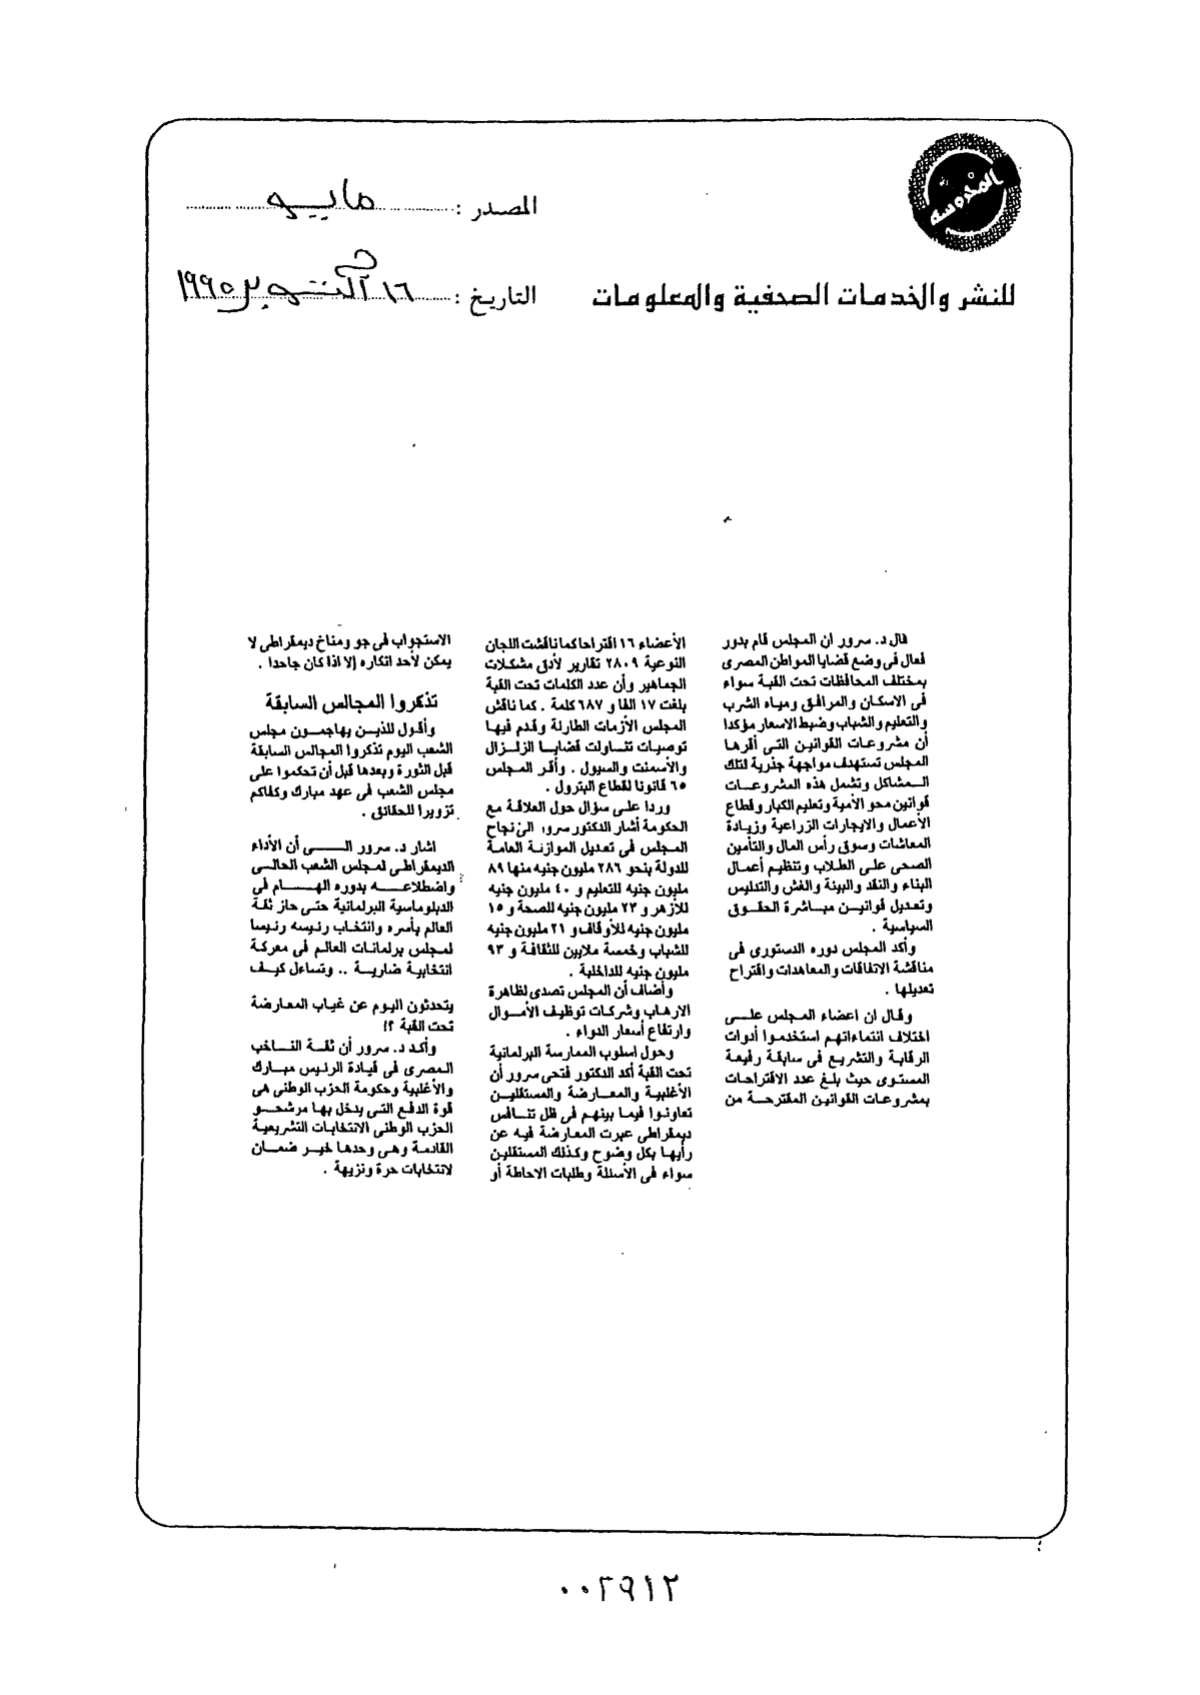 المحروسة
المصدر : مايو
للنشر والخدمات الصحفية والمعلومات
التاريخ : ١٦ أكتوبر ١٩٩٥
قال د. سرور ان المجلس قام بدور
فعال فى وضع قضايا المواطن المصرى
بمختلف المحافظات تحت القبة سواء
فى الاسكان والمرافق ومياه الشرب
والتعليم والشباب وضبط الاسعار مؤكدا
أن مشروعات القوانين التى أقرها
المجلس تستهدف مواجهة جذرية لتلك
المشاكل وتشمل هذه المشروعات
قوانين محو الأمية وتعليم الكبار وقطاع
الأعمال والايجارات الزراعية وزيادة
المعاشات وسوق رأس المال والتأمين
الصحى على الطلاب وتنظيم أعمال
البناء والنقد والبيئة والغش والتدليس
وتعديل قوانين مباشرة الحقوق
السياسية .
وأكد المجلس دوره الدستورى فى
مناقشة الاتفاقات والمعاهدات واقتراح
تعديلها .
وقال ان اعضاء المجلس على
اختلاف انتماءاتهم استخدموا أدوات
الرقابة والتشريع فى سابقة رفيعة
المستوى حيث بلغ عدد الاقتراحات
بمشروعات القوانين المقترحة من
الأعضاء ١٦ اقتراحا كما ناقشت اللجان
النوعية ٢٨٠٩ تقارير لأدق مشكلات
الجماهير وأن عدد الكلمات تحت القبة
بلغت ١٧ الفا و ٦٨٧ كلمة . كما ناقش
المجلس الأزمات الطارئة وقدم فيها
توصيات تناولت قضايا الزلزال
والأسمنت والسيول . وأقر المجلس
٦٥ قانونا لقطاع البترول .
وردا على سؤال حول العلاقة مع
الحكومة أشار الدكتور سرور الى نجاح
المجلس فى تعديل الموازنة العامة
للدولة بنحو ٢٨٦ مليون جنيه منها ٨٩
مليون جنيه للتعليم و ٤٠ مليون جنيه
للأزهر و ٢٣ مليون جنيه للصحة و ١٥
مليون جنيه للأوقاف و ٢١ مليون جنيه
للشباب وخمسة ملايين للثقافة و ٩٣
مليون جنيه للداخلية .
وأضاف أن المجلس تصدى لظاهرة
الارهاب وشركات توظيف الأموال
وارتفاع أسعار الدواء .
وحول اسلوب الممارسة البرلمانية
تحت القبة أكد الدكتور فتحى سرور أن
الأغلبية والمعارضة والمستقلين
تعاونوا فيما بينهم فى ظل تنافس
ديمقراطى عبرت المعارضة فيه عن
رأيها بكل وضوح وكذلك المستقلين
سواء فى الأسئلة وطلبات الاحاطة أو
الاستجواب فى جو ومناخ ديمقراطى لا
يمكن لأحد انكاره إلا اذا كان جاحدا .
تذكروا المجالس السابقة
وأقول للذين يهاجمون مجلس
الشعب اليوم تذكروا المجالس السابقة
قبل الثورة وبعدها قبل أن تحكموا على
مجلس الشعب فى عهد مبارك وكفاكم
تزويرا للحقائق .
اشار د. سرور الى أن الأداء
الديمقراطى لمجلس الشعب الحالى
واضطلاعه بدوره الهام فى
الدبلوماسية البرلمانية حتى حاز ثقة
العالم بأسره وانتخاب رئيسه رئيسا
لمجلس برلمانات العالم فى معركة
انتخابية ضارية .. وتساءل كيف
يتحدثون اليوم عن غياب المعارضة
تحت القبة ؟!
وأكد د. سرور أن ثقة الناخب
المصرى فى قيادة الرئيس مبارك
والأغلبية وحكومة الحزب الوطنى هى
قوة الدفع التى يدخل بها مرشحو
الحزب الوطنى الانتخابات التشريعية
القادمة وهى وحدها خير ضمان
لانتخابات حرة ونزيهة .
٠٠٢٩١٢